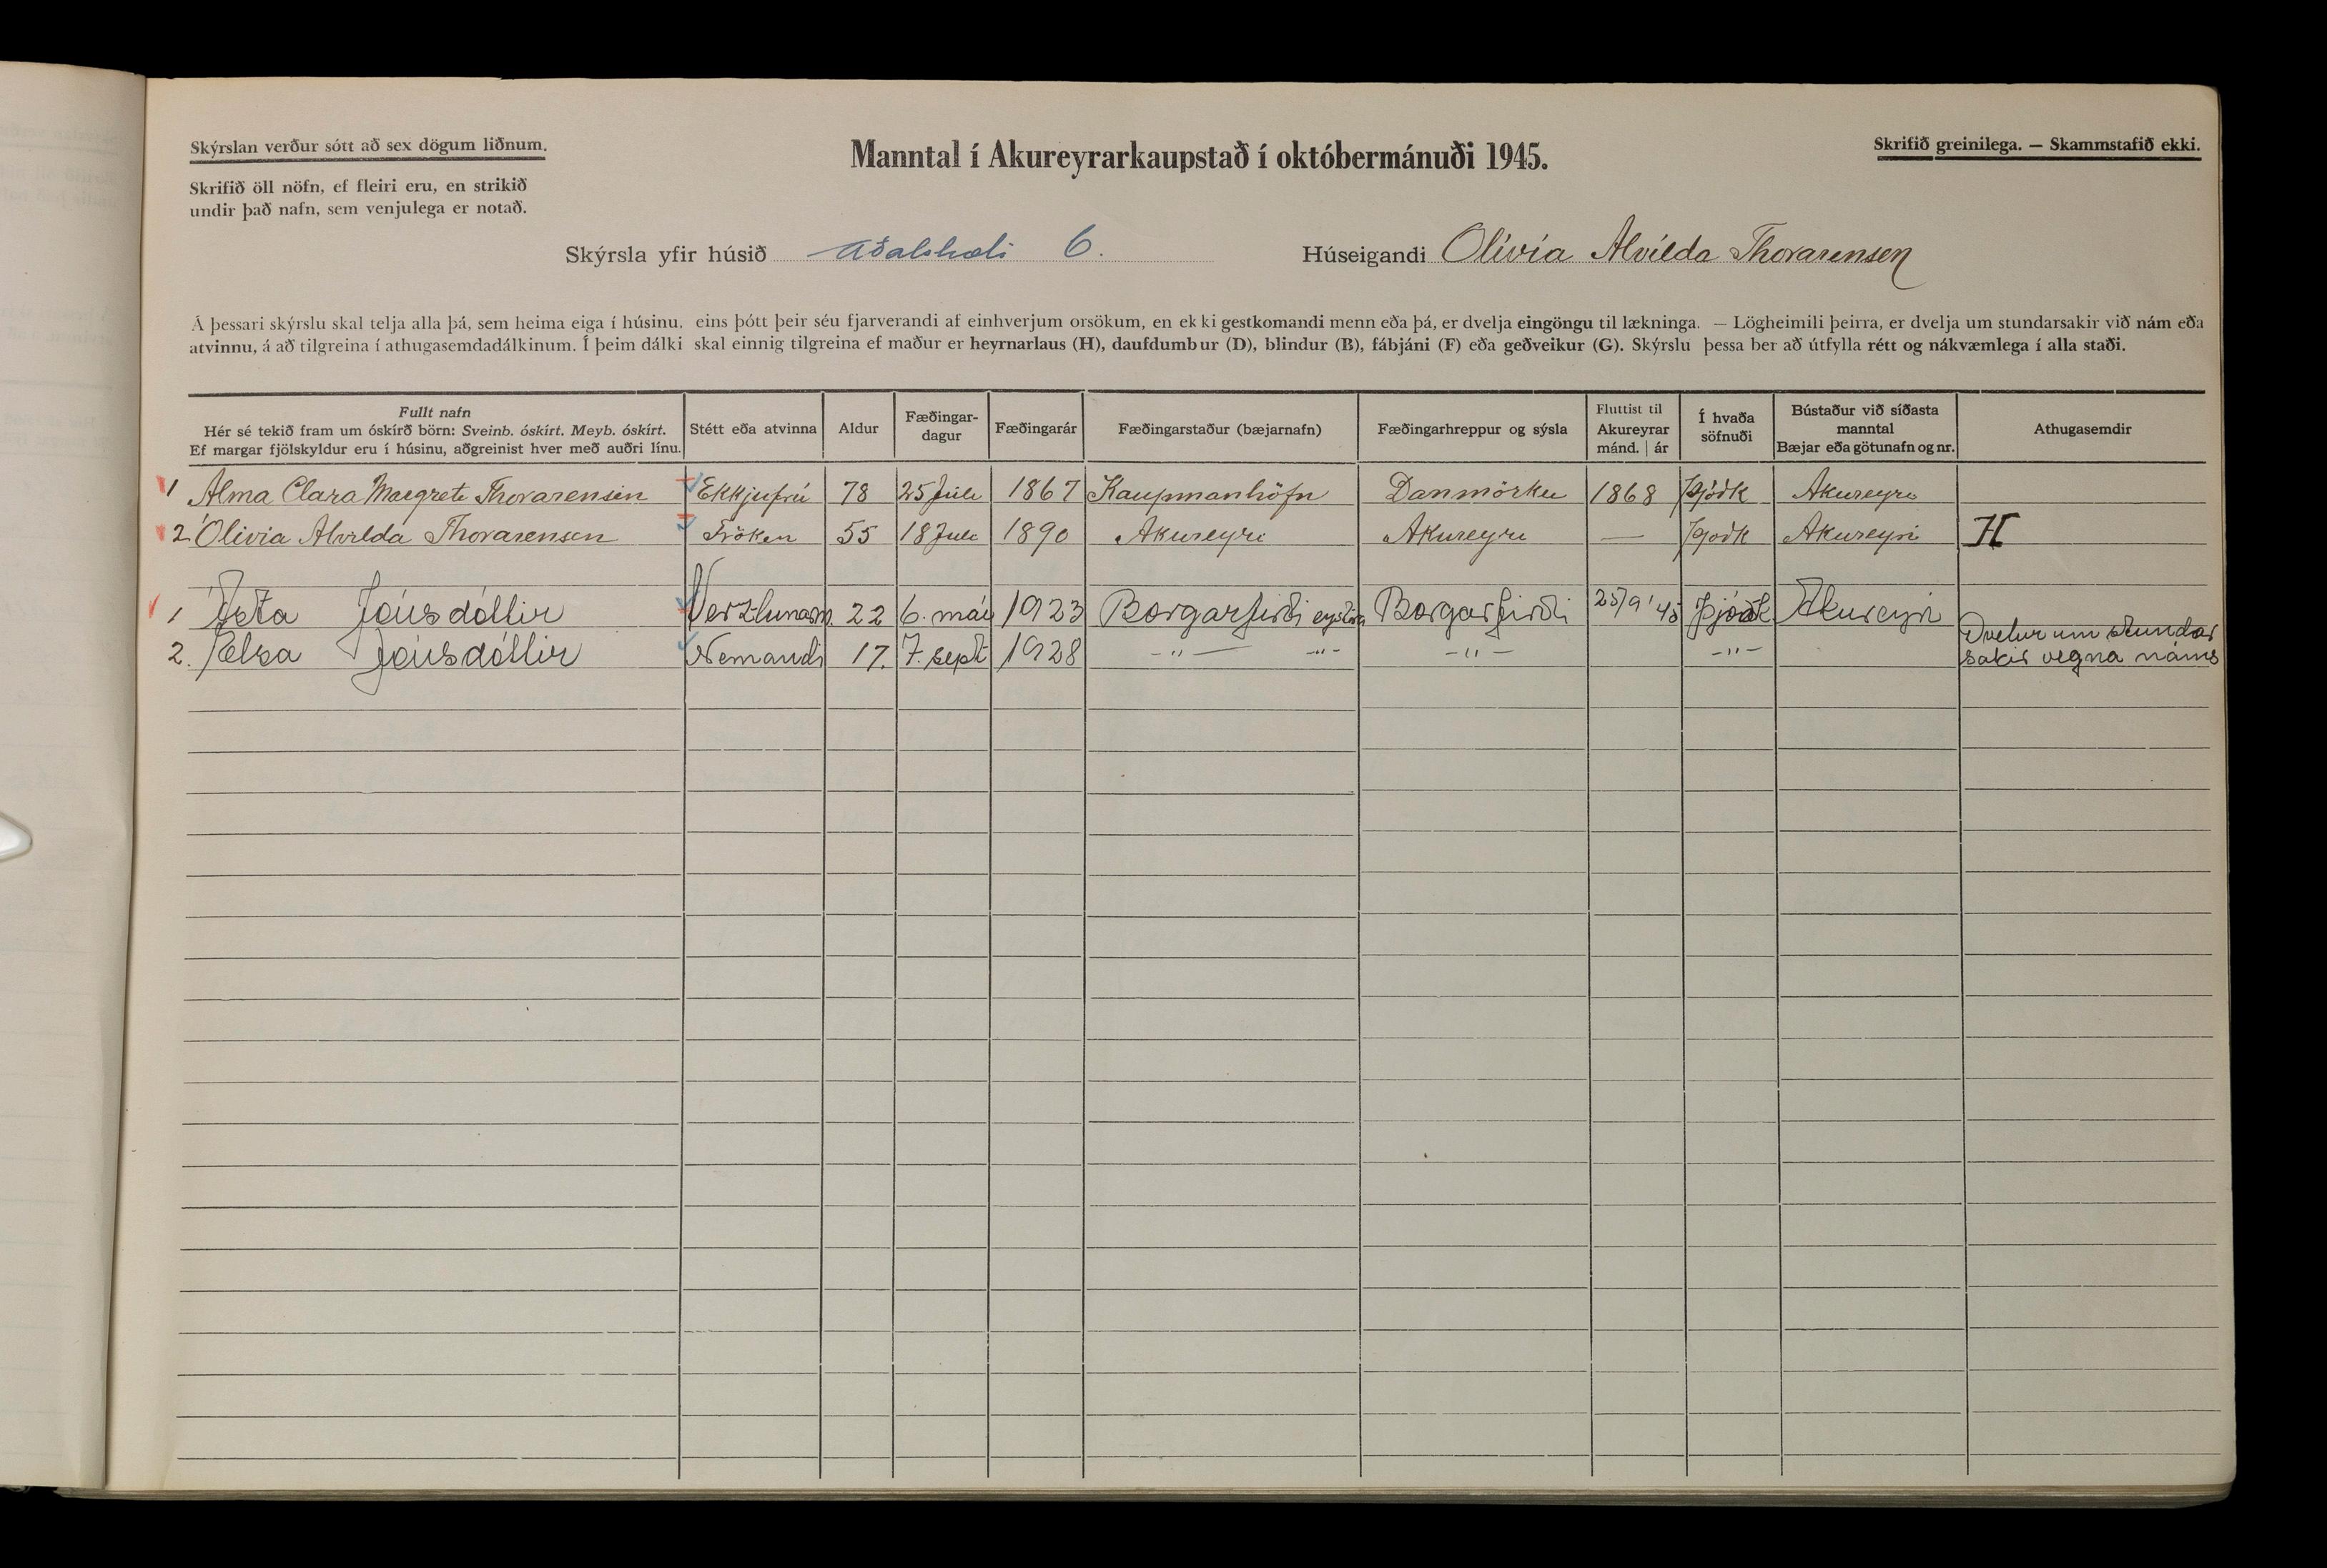 Skýrslan verður sótt að sex dögum liðnum.
Skrifið öll nöfn, ef fleiri eru, en strikið
undir það nafn, sem venjulega er notað.
Manntal í Akureyrarkaupstað í októbermánuði 1945.
Skrifið greinilega. — Skammstafið ekki.
Skýrsla yfir húsið 6.
Húseigandi Olivia Alvilda Thorarensen
Á þessari skýrslu skal telja alla þá, sem heima eiga í húsinu, eins þótt þeir séu fjarverandi af einhverjum orsökum, en ekki gestkomandi menn eða þá, er dvelja eingöngu til lækninga. — Lögheimili þeirra, er dvelja um stundarsakir við nám eða
atvinnu, á að tilgreina í athugasemdadálkinum. Í þeim dálki skal einnig tilgreina ef maður er heyrnarlaus (H), daufdumbur (D), blindur (B), fábjáni (F) eða geðveikur (G). Skýrslu þessa ber að útfylla rétt og nákvæmlega í alla staði.
Fullt nafn
Hér sé tekið fram um óskírð börn: Sveinb. óskírt. Meyb. óskírt.
Ef margar fjölskyldur eru í húsinu, aðgreinist hver með auðri línu.
Stétt eða atvinna
Aldur
Fæðingar-
dagur
Fæðingarár
Fæðingarstaður (bæjarnafn)
Fæðingarhreppur og sýsla
Fluttist til
Akureyrar
mánd. | ár
Í hvaða
söfnuði
Bústaður við síðasta
manntal
Bæjar eða götunafn og nr.
Athugasemdir
1 Alma Clara Margrete Thorarensen Ekkjufrú 78 25 Júli 1867 Kaupmanhöfn Danmörku 1868 Þjóðk Akureyri
2 Olivia Alvilda Thorarensen Fröken 55 18 Júli 1890 Akureyri Akureyri — Þjóðk Akureyri H
1 Ásta Jónsdóttir Verzlunarm. 22 6. maí 1923 Borgarfirði eystra Borgarfirði 25/9 '45 Þjóðk Akureyri
2. Elsa Jónsdóttir Nemandi 17. 7. sept 1928 -"- -"- -"- -"- Dvelur um stundar
sakir vegna náms